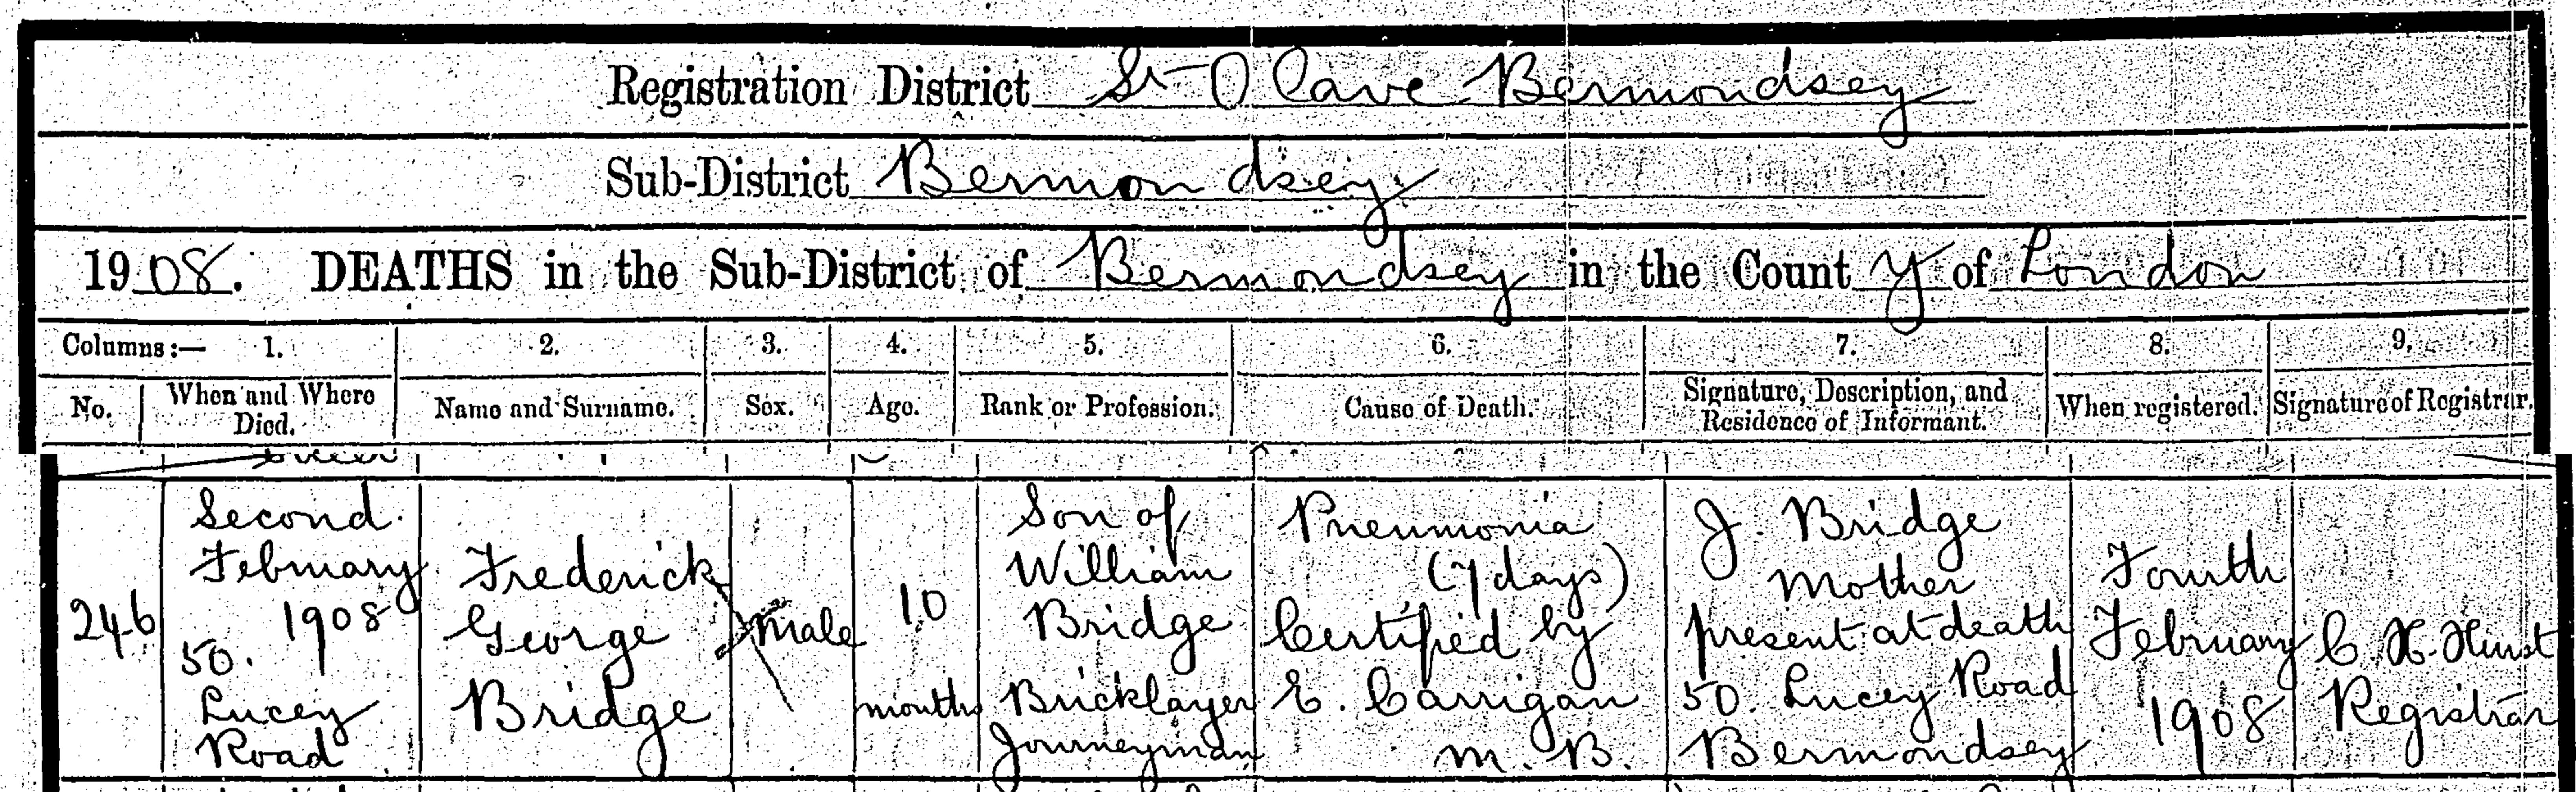 Registration District St Olave Bermondsey
Sub-District Bermondsey
1908. DEATHS in the Sub-District of Bermondsey in the County of London
Columns:— 1. 2. 3. 4. 5. 6. 7. 8. 9.
No. When and Where Died. Name and Surname. Sex. Age. Rank or Profession. Cause of Death. Signature, Description, and Residence of Informant. When registered. Signature of Registrar.
246
Second
February
1908
50.
Lucey
Road
Frederick
George
Bridge
Male
10
months
Son of
William
Bridge
Bricklayer
Journeyman
Pneumonia
(7 days)
Certified by
E. Carrigan
M. B.
J. Bridge
Mother
present at death
50. Lucey Road
Bermondsey
Fourth
February
1908
C. H. Hurst
Registrar